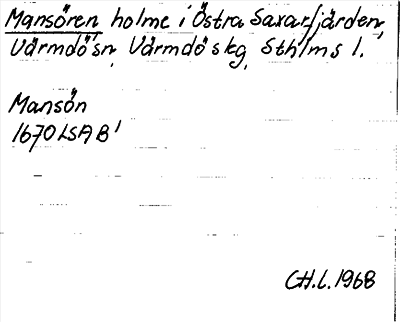 Mansören holme i Östra Saxarfjärden,
Värmdö sn, Värmdö skg, Sthlms l.
Mansön
1670 LSA B¹
C.H.L. 1968